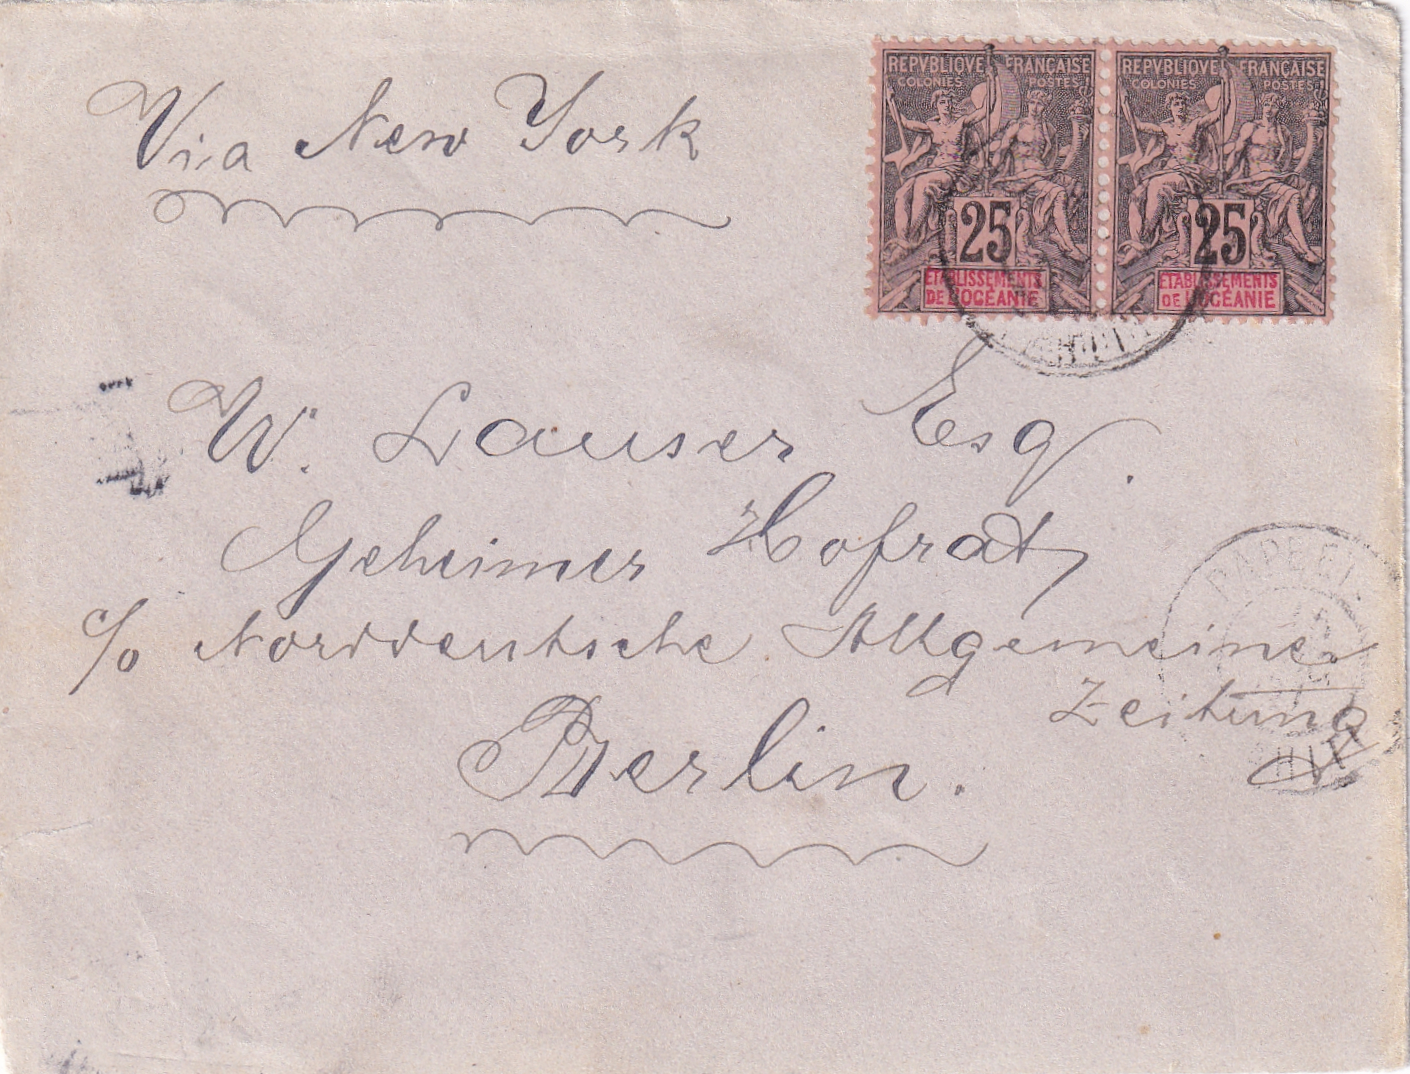 Via New York
REPVBLIQVE FRANÇAISE
COLONIES POSTES
25
ETABLISSEMENTS
DE L'OCÉANIE
REPVBLIQVE FRANÇAISE
COLONIES POSTES
25
ETABLISSEMENTS
DE L'OCÉANIE
W. Lauser Esq.
Geheimer Hofrat,
c/o Norddeutsche Allgemeine
Zeitung
Berlin.